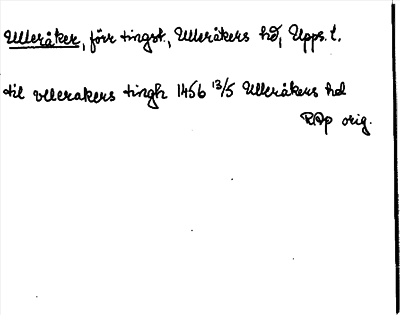 Ulleråker, förr tingst., Ulleråkers hd, Upps. l.
til vllerakers tingh 1456 13/5 Ulleråkers hd
RAp orig.